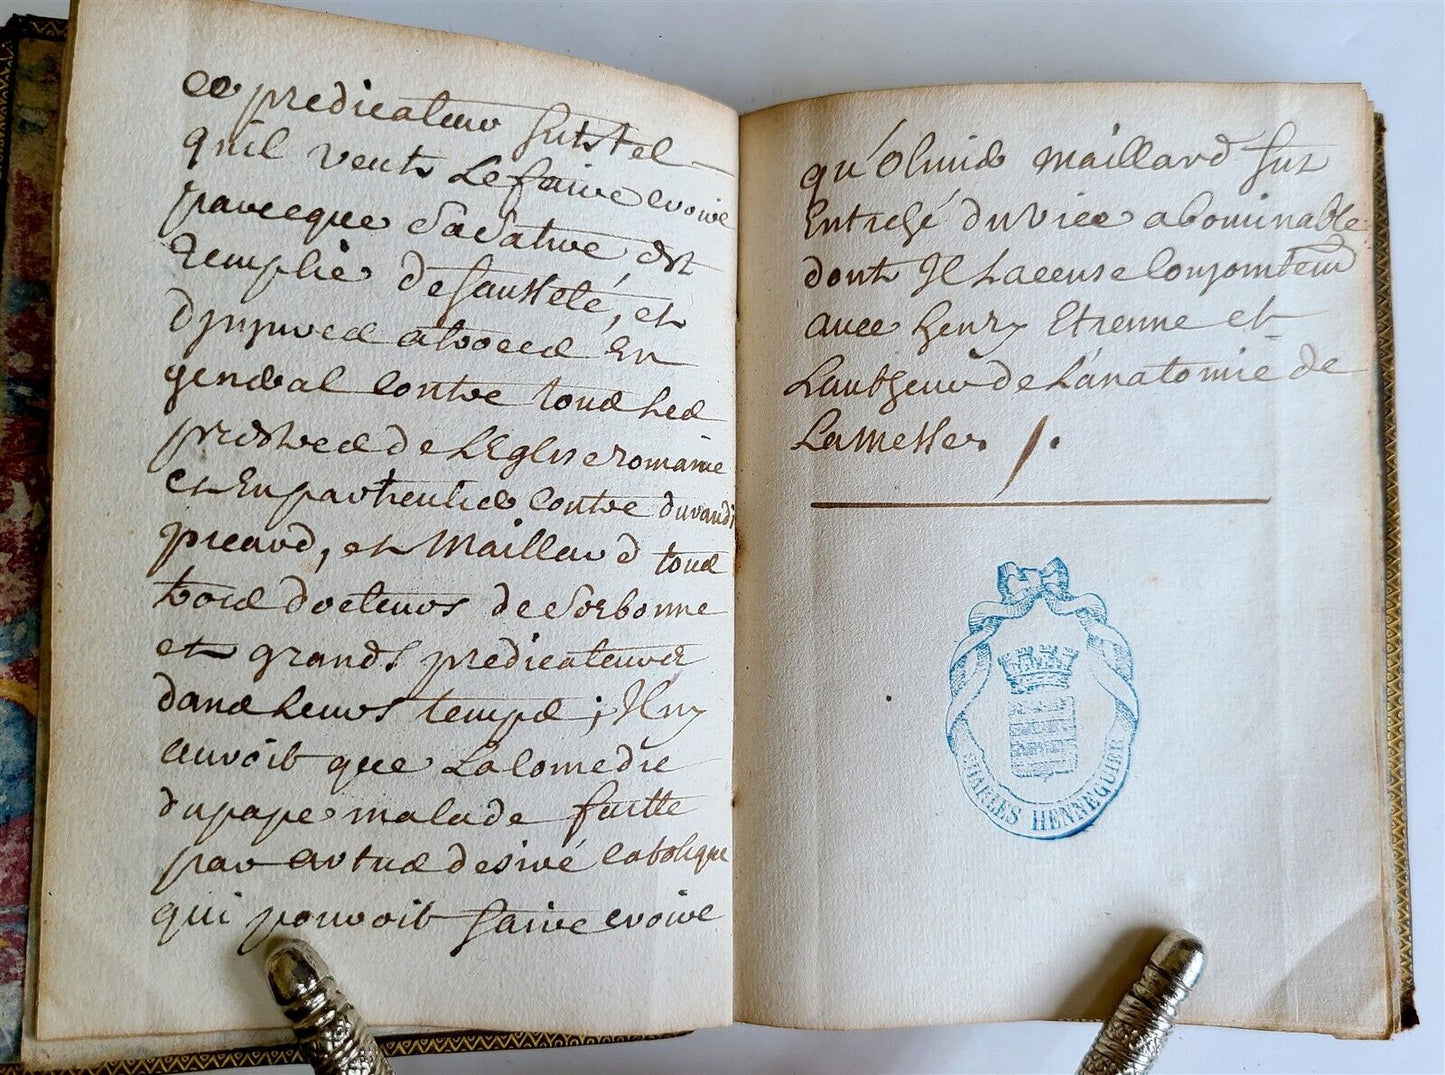 ce predicateur fut tel
qu'il veut le faire croire
parceque sa satire est
remplie de fausseté, et
d'injures atroces en
general contre tous les
prestres de l'Eglise romaine
et en particulier contre
picard, et Maillard tous
trois docteurs de Sorbonne
et grands predicateurs
dans leurs temps; Il n'y
auroit que La Comedie
du pape malade faitte
par
qui pouvoit faire croire
qu'Olivier Maillard fut
Entaché du vice abominable
dont Il L'accuse Conjointem
avec henry Etienne et
L'autheur de L'anatomie de
La Messe.
CHARLES HENNEGUIER